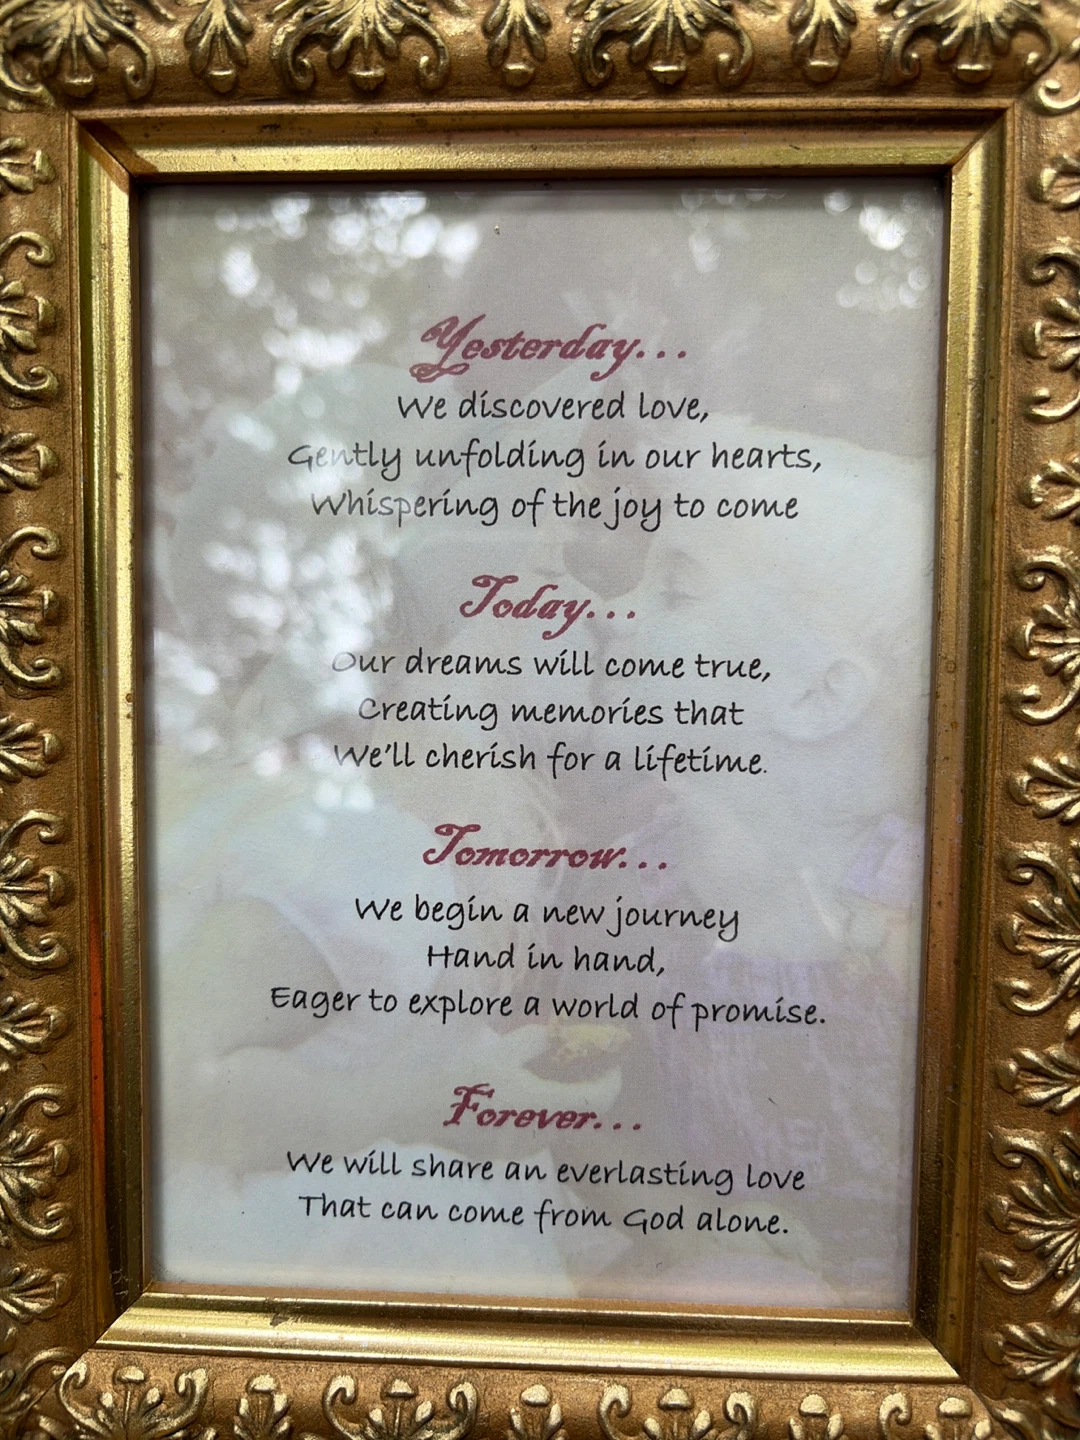 Yesterday...
We discovered love,
Gently unfolding in our hearts,
Whispering of the joy to come
Today...
Our dreams will come true,
Creating memories that
We'll cherish for a lifetime.
Tomorrow...
We begin a new journey
Hand in hand,
Eager to explore a world of promise.
Forever...
We will share an everlasting love
That can come from God alone.